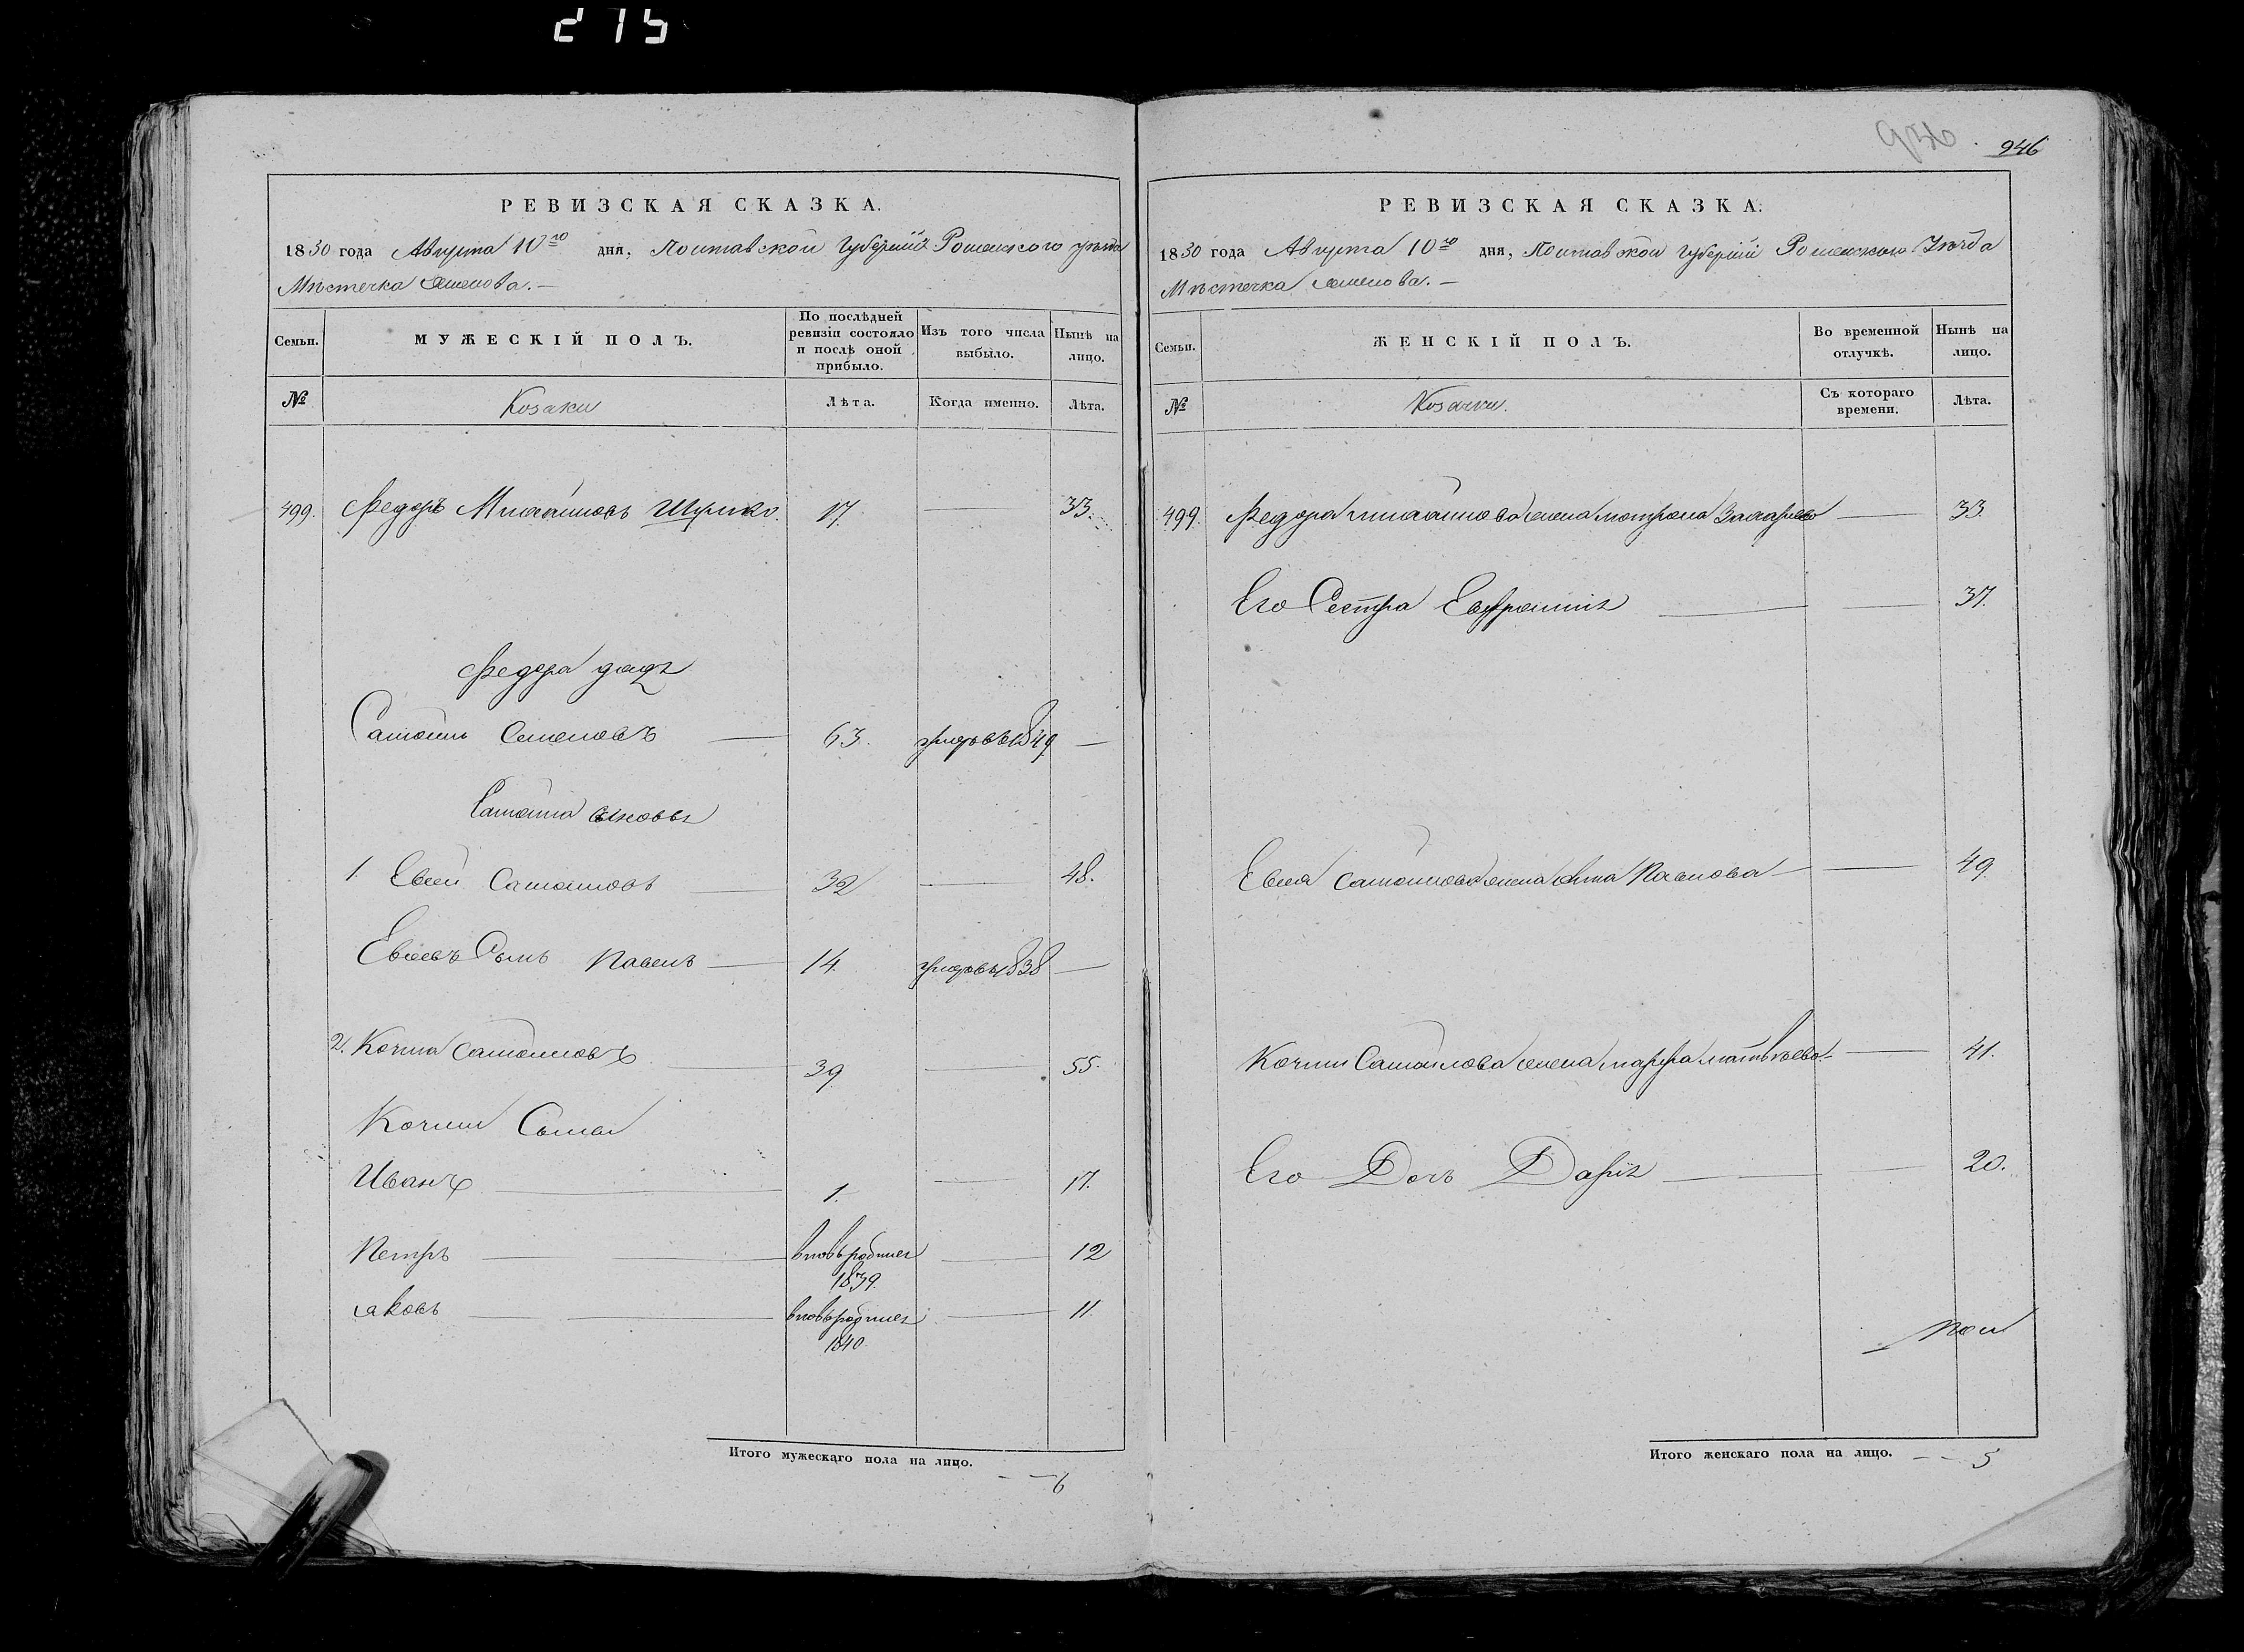 215
936
946
РЕВИЗСКАЯ СКАЗКА.
1830 года Августа 10го дня, Полтавской Губерніи Роменского уѣзда
Мѣстечка Смелова. —
Семьи.
МУЖЕСКІЙ ПОЛЪ.
По послѣдней ревизіи состояло и послѣ оной прибыло.
Изъ того числа выбыло.
Нынѣ на лицо.
№
Козаки
Лѣта.
Когда именно.
Лѣта.
499. Федоръ Михайловъ Шулико. 17. — 33.
Федора дядя
Самойло Семеновъ — 63. умеръ въ 1849 —
Самойла сыновья
1. Евсей Самойловъ — 32 — 48.
Евсеевъ Сынъ Павелъ — 14. умеръ въ 1838 —
2. Козма Самойловъ 39 — 55.
Козмы Сыновья
Иванъ — 1. — 17.
Петръ — вновь родился — 12
1839.
Яковъ — вновь родился — 11.
1840
Итого мужескаго пола на лицо. — — 6
РЕВИЗСКАЯ СКАЗКА.
1830 года Августа 10го дня, Полтавской Губерніи Роменского Уѣзда
Мѣстечка Смелова. —
Семьи.
ЖЕНСКІЙ ПОЛЪ.
Во временной отлучкѣ.
Нынѣ на лицо.
№
Козачки.
Съ котораго времени.
Лѣта.
499. Федора Михайлова жена Мотрона Захарьева — 33.
Его Сестра Евфросинія — 37.
Евсея Самойлова жена Анна Павлова — 49.
Козмы Самойлова жена Марфа Матвѣева — 41.
Его Дочь Дарія — 20.
Итого женскаго пола на лицо. — — 5